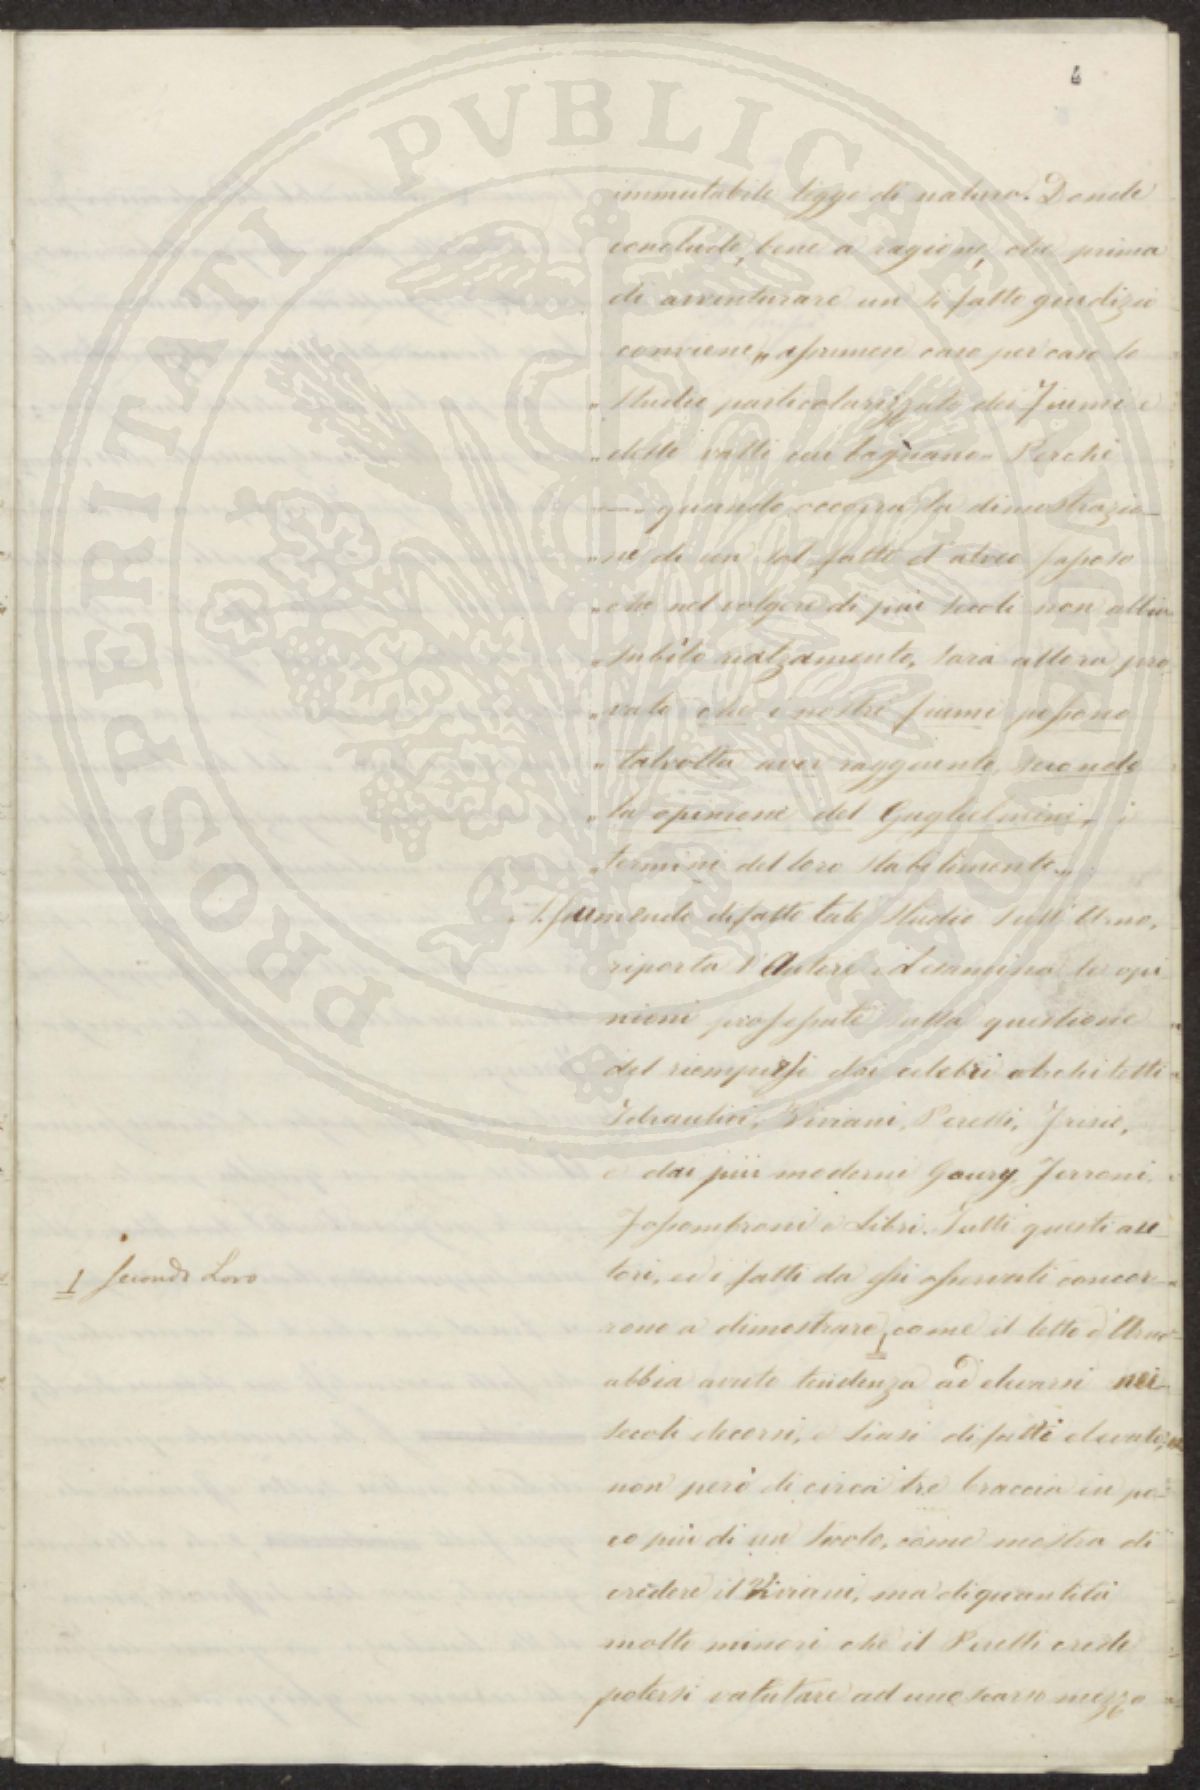 immutabile legge di natura. Donde
conclude, bene a ragione, che prima
di avventurare un sì fatto giudizio
conviene „ assumere caso per caso lo
„ studio particolarizzato dei Fiumi e
„ delle valli cui bagnano „ Perchè
„ — quando occorra la dimostrazio-
„ ne di un sol fatto d'alveo
„ che nel volgere di più secoli non abbia
„ subito rialzamento, sarà allora pro
„ vato che i nostri fiumi possono
„ talvolta aver raggiunto, secondo
„ la opinione del Guglielmini, i
„ termini del loro stabilimento „
Assumendo difatto tale studio sull'Arno,
riporta l'Autore ed esamina le opi
nioni professate sulla questione
del riempirsi dai celebri architetti
Idraulici, Viviani, Perelli, Frisio,
e dai più moderni Goury, Ferroni,
Fossombroni e Libri. Tutti questi au
tori, ed i fatti da essi osservati concor-
rono a dimostrare, 1 come il letto d'Arno
1 secondo Loro
abbia avuto tendenza ad elevarsi nei
secoli decorsi, e siasi difatti elevato,
non però di circa tre braccia in po-
co più di un secolo, come mostra di
credere il Viviani, ma di quantità
molto minori che il Perelli crede
potersi valutare ad uno scarso mezzo